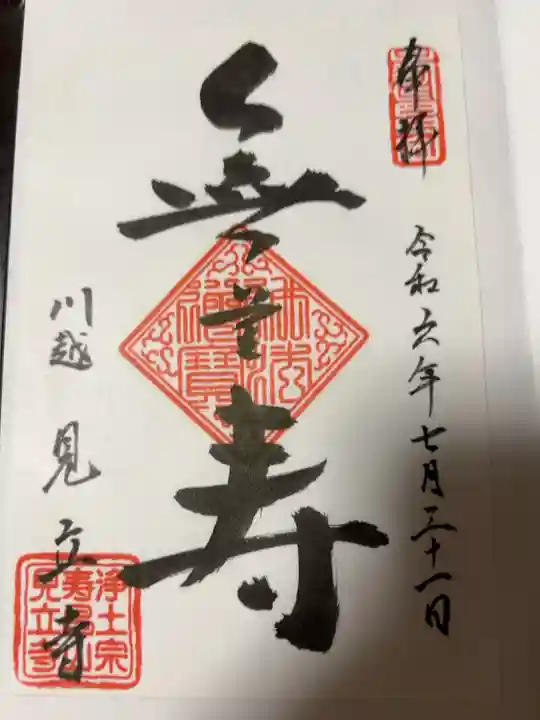 奉拝
令和六年七月三十一日
無量寿
川越 見立寺
浄土宗
寿昌山
見立寺